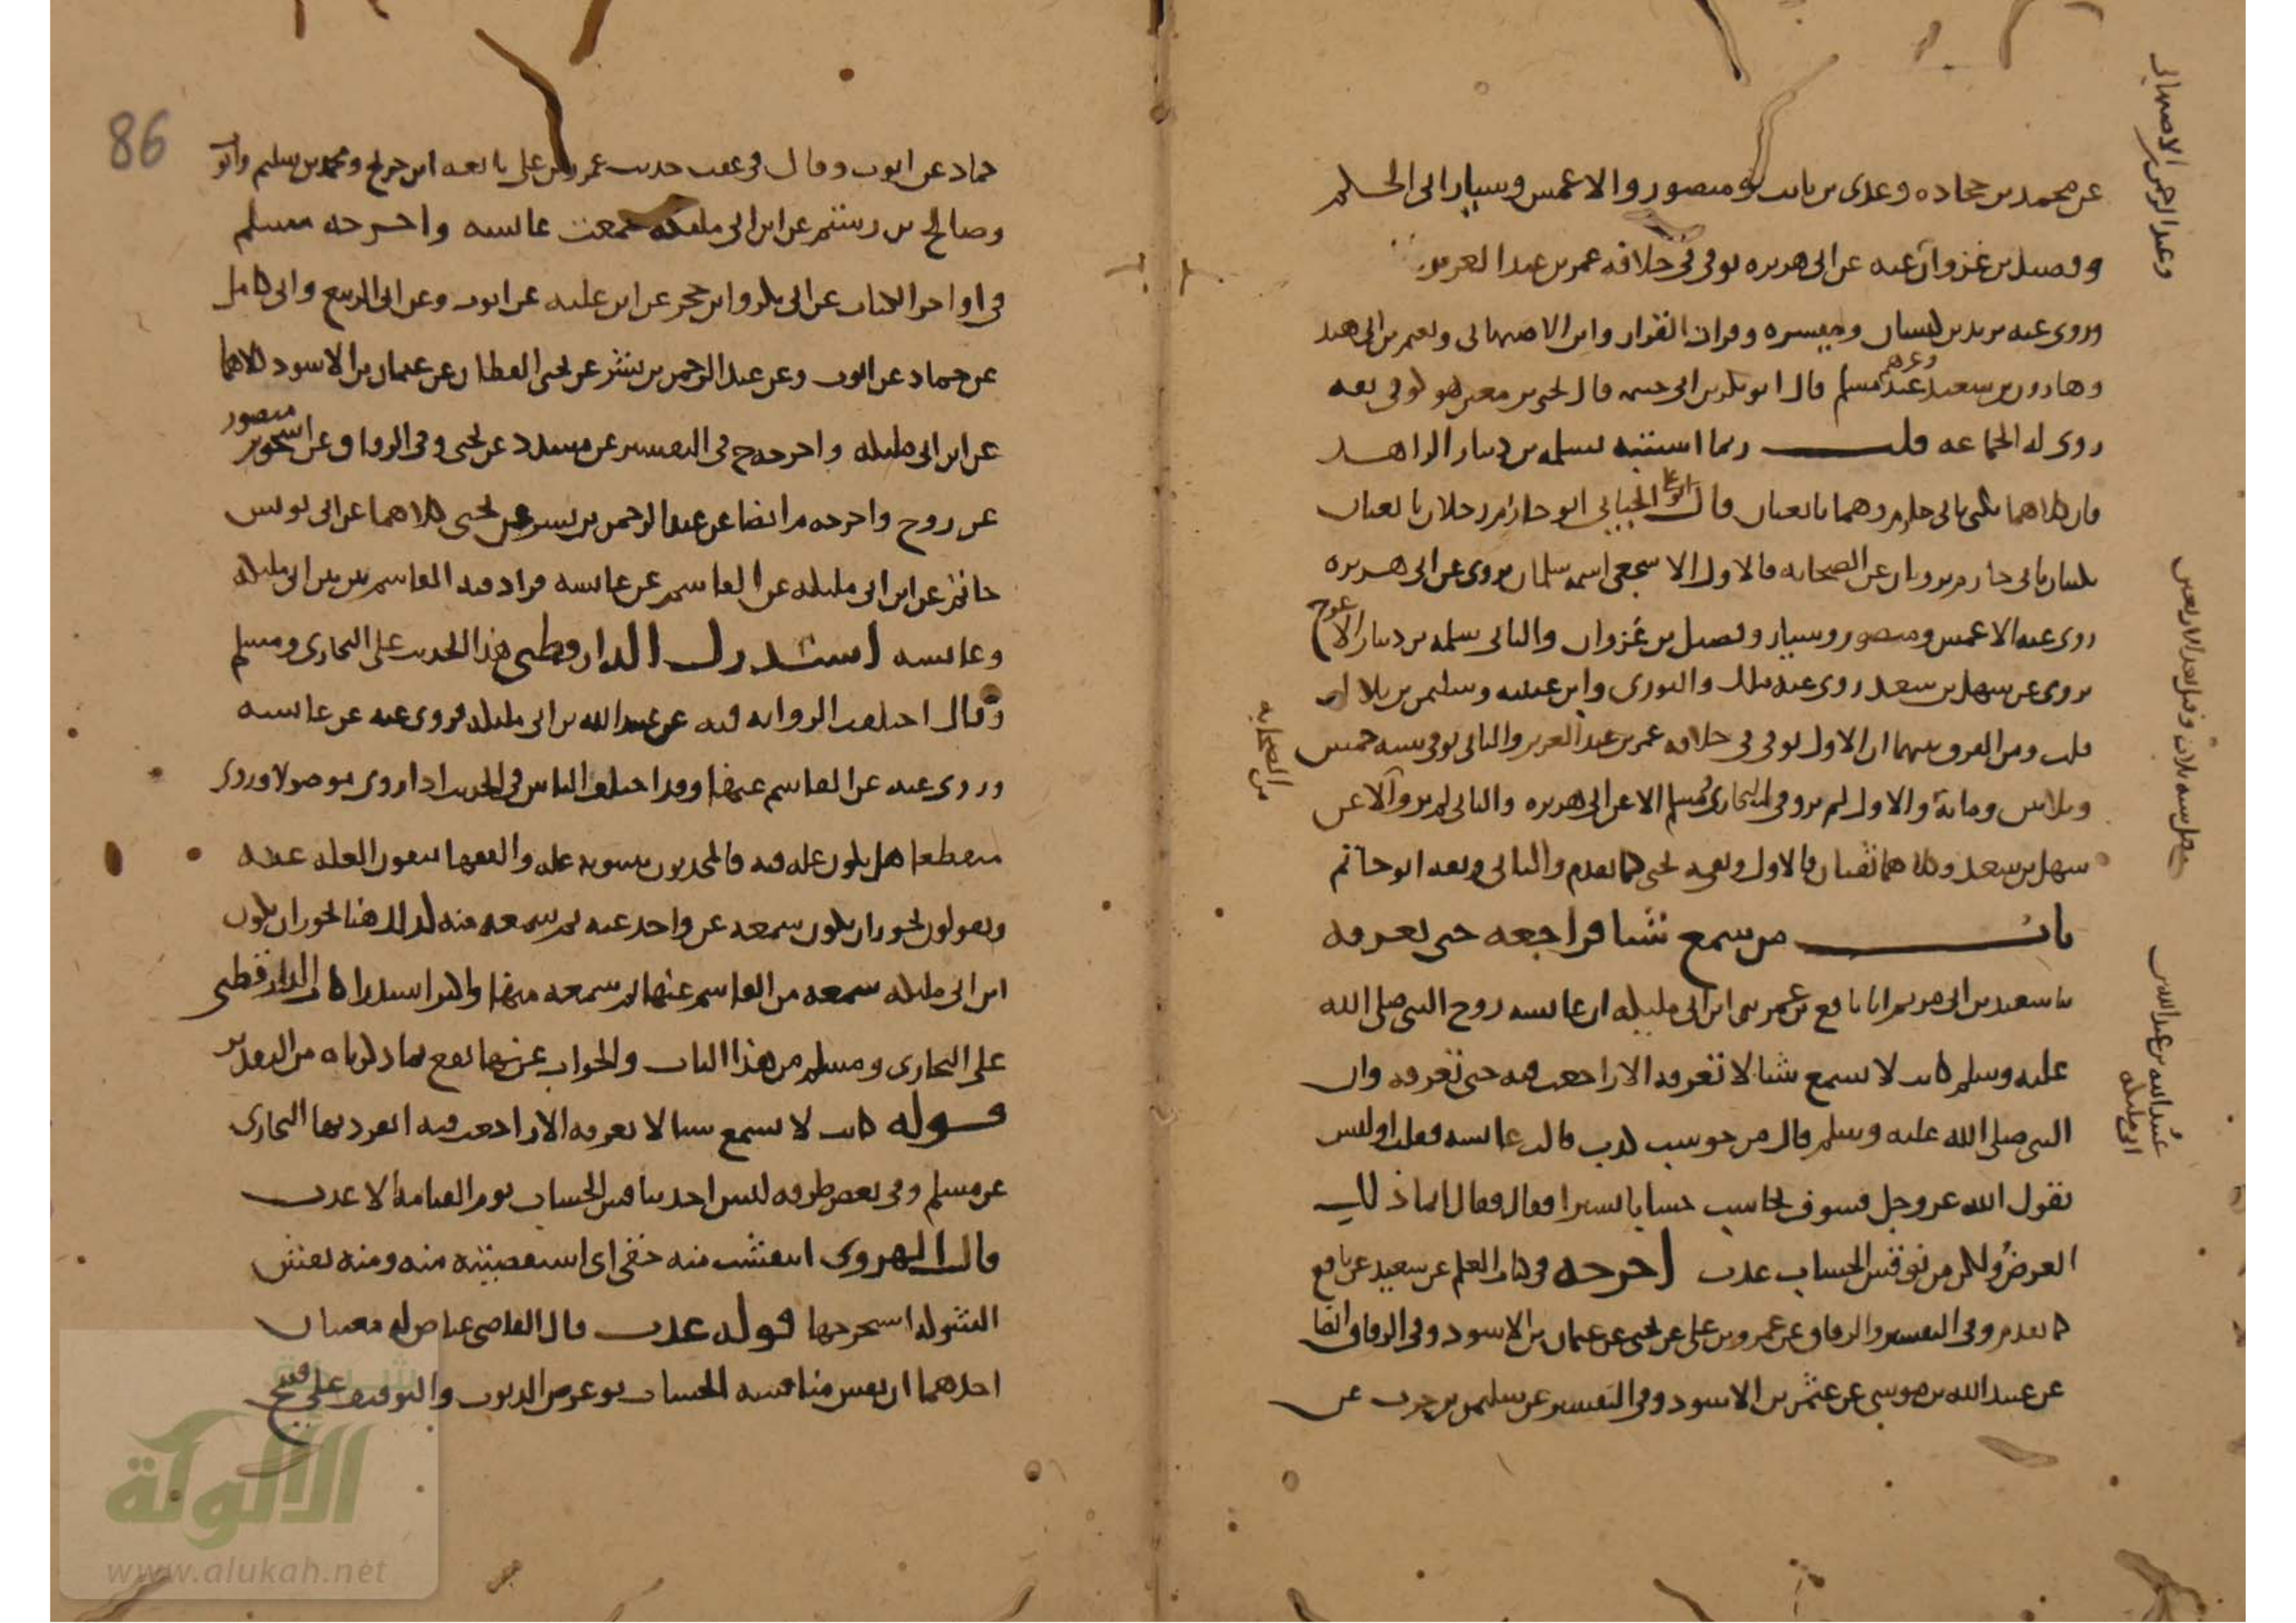 عن محمد بن جحاده وعدى بن ثابت ومنصور والاعمش وسيار ابى الحكم
وفضيل بن غزوان عنه عن ابى هريره توفى فى خلافه عمر بن عبد العزيز
وروى عنه يزيد بن كيسان وميسره وفرات القزاز وابن الاصبهانى ونعيم بن ابى هند
وهارون بن سعيد عند مسلم قال ابو بكر بن ابى خيثمه قال يحيى بن معين هو كوفى ثقه
وغيرهم
روى له الجماعه قلت ربما اشتبه بسلمه بن دينار الزاهد
فان كلاهما يكنى بابى حازم وهما تابعيان وقال ابو على الجيانى ابو حازم رجلان تابعيان
يكنيان بابى حازم يرويان عن الصحابه فالاول الاشجعى اسمه سلمان يروى عن ابى هريره
روى عنه الاعمش ومنصور وسيار وفضيل بن غزوان والثانى سلمه بن دينار الاعرج
يروى عن سهل بن سعد روى عنه مالك والثورى وابن عيينه وسليمن بن بلال
قلت ومن الفرق بينهما ان الاول توفى فى خلافه عمر بن عبد العزيز والثانى توفى سنه خمس
وثلاثين ومائة والاول لم يرو فى البخارى ومسلم الا عن ابى هريره والثانى لم يرو الا عن
سهل بن سعد وكلاهما ثقتان فالاول وثقه يحيى كما تقدم والثانى وثقه ابو حاتم
باب من سمع شيا فراجعه حتى يعرفه
ثنا سعيد بن ابى مريم انا نافع بن عمر ثنى ابن ابى مليكه ان عائشه زوج النبى صلى الله
عليه وسلم كانت لا تسمع شيا لا تعرفه الا راجعت فيه حتى تعرفه وان
النبى صلى الله عليه وسلم قال من حوسب عذب قالت عائشه فقلت اوليس
يقول الله عز وجل فسوف يحاسب حسابا يسيرا فقال انما ذلك
العرض ولكن من نوقش الحساب عذب اخرجه فى كتاب العلم عن سعيد عن نافع
كما تقدم وفى التفسير والرقاق عن عمرو بن على عن يحيى عن عثمان بن الاسود وفى الرقاق ايضا
عن عبيد الله بن موسى عن عثمن بن الاسود وفى التفسير عن سليمن بن حرب عن
وعبد الرحمن الاصبهانى
وقيل بعد الاربعين
من الصحابه
عبد الله بن عبيد الله بن
ابى مليكه
86
حماد عن ايوب وقال فى عقب حديث عمرو بن على تابعه ابن جريج ومحمد بن سليم وايوب
وصالح بن رستم عن ابن ابى مليكه سمعت عائشه واخرجه مسلم
فى اواخر الكتاب عن ابى بكر وابن حجر عن ابن عليه عن ايوب وعن ابى الربيع وابى كامل
عن حماد عن ايوب وعن عبد الرحمن بن بشر عن يحيى القطان عن عثمان بن الاسود كلاهما
عن ابن ابى مليكه واخرجه خ فى التفسير عن مسدد عن يحيى وفى الرقاق عن اسحق بن منصور
عن روح واخرجه م ايضا عن عبد الرحمن بن بشر عن يحيى كلاهما عن ابى يونس
حاتم عن ابن ابى مليكه عن القاسم عن عائشه فزاد فيه القاسم بين ابن ابى مليكه
وعائشه استدرك الدارقطنى هذا الحديث على البخارى ومسلم
وقال اختلفت الروايه فيه عن عبد الله بن ابى مليكه فروى عنه عن عائشه
وروى عنه عن القاسم عنها وقد اختلف الناس فى الحديث اذا روى موصولا وروى
منقطعا هل يكون عله فيه فالمحدثون يثبتونه عله والفقهاء ينفون العله عنه
ويقولون يجوز ان يكون سمعه عن واحد عنه ثم سمعه منه كذلك هنا يجوز ان يكون
ابن ابى مليكه سمعه من القاسم عنها ثم سمعه منها واكثر استدراكات الدارقطنى
على البخارى ومسلم من هذا الباب والجواب عنها يقع بما ذكرناه من التقدير
قوله كانت لا تسمع شيا لا تعرفه الا راجعت فيه انفرد بها البخارى
عن مسلم وفى بعض طرقه ليس احد يناقش الحساب يوم القيامه الا عذب
قال الهروى انتقشت منه حقى اى استقصيته منه ومنه نقش
الشوكه استخرجها قوله عذب قال القاضى عياض له معنيان
احدهما ان نفس مناقشه الحساب وعرض الذنوب والتوقيف على قبيح
شبكة
الألوكة
www.alukah.net